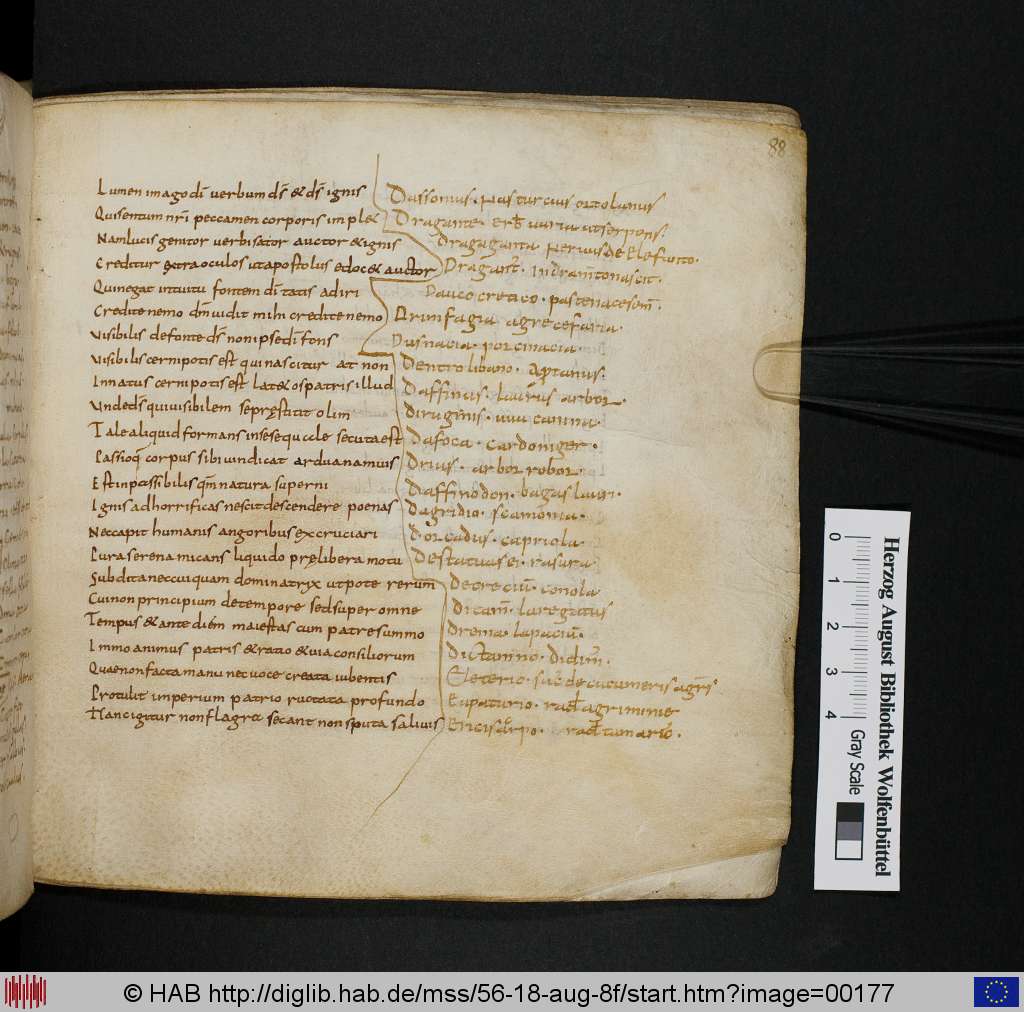 88
Lumen imago dī verbum dīs & dīs ignis
Qui sentum nrī peccamen corporis imple&
Nam lucis genitor verbi sator auctor & ignis
Creditur extra oculos ut apostolus edoc& auctor
Qui negat intuitu fontem dītatis adiri
Credite nemo dm̄ vidit mihi credite nemo
Visibilis de fonte dīs non ipse dī fons
Visibilis cerni potis est qui nascitur at non
Innatus cerni potis est lat& os patris illud
Unde dīs qui visibilem se pręstitit olim
Tale aliquid formans in sese quale secuta est
Passioq corpus sibi vindicat ardua namuis
Est inpassibilis qm̄ natura superni
Ignis ad horrificas nescit descendere poenas
Nec capit humanis angoribus excruciari
Pura serena micans liquido pręlibera motu
Subdita nec cuiquam dominatrix utpote rerum
Cui non principium de tempore sed super omne
Tempus & ante diém maiestas cum patre summo
Immo animus patris & ratio & via consiliorum
Quae non facta manu nec voce creata iubentis
Protulit imperium patrio ructata profundo
Hanc igitur non flagra secant non sputa salivis
Dassomus. nasturcius ortolanus
Dragante. erb varia ut serpens.
Dragaganta nervus de Elefanto.
Dragant. in dramtonascit.
Dauco cretico. pastenace sem.
Arimfagia agre cefaria.
Dusnacia. porcinacia.
Dentro libano. aptanus.
Daffinus. laurus arbor.
Dirugenis. uva canina.
Dafoca. cardoniger.
Drius. arbor robor.
Daffinodon. bagas lauri.
Dagridio. scamonia.
Dorcadus. capriola.
De statuas ei. rasura.
Decre ciu. conola
Dicam. laregatus
Drema. lapaciu.
Dictamno. didim.
Eleterio. suc de cucumeris agris
Eupaturio. rad agriminie
Ericiscarpo. rad tamario.
0
1
2
3
4
Gray Scale
Herzog August Bibliothek Wolfenbüttel
© HAB http://diglib.hab.de/mss/56-18-aug-8f/start.htm?image=00177